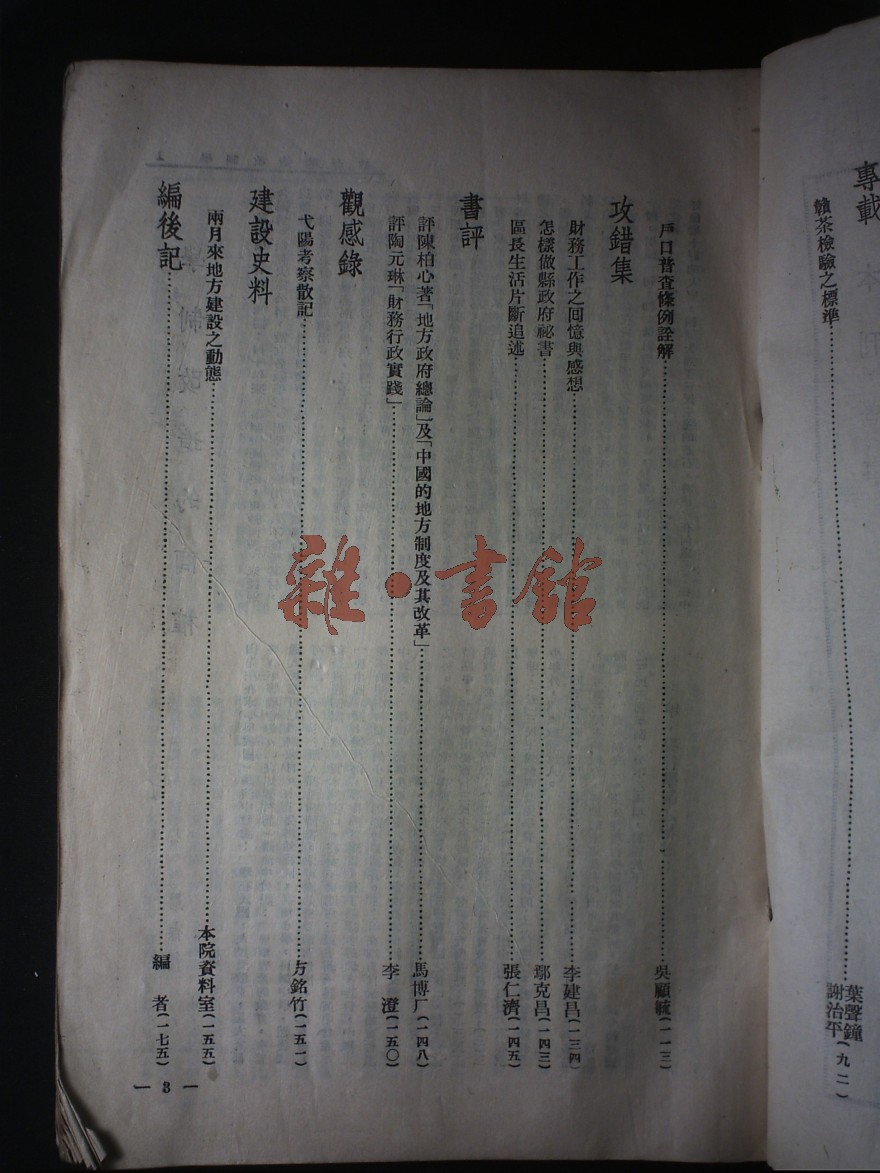 專載
贛茶檢驗之標準……葉聲鐘 謝治平(九二)
戶口普查條例詮解……吳顧毓(一一三)
攻錯集
財務工作之回憶與感想……李建昌(一三四)
怎樣做縣政府祕書……鄢克昌(一四三)
區長生活片斷追述……張仁濟(一四五)
書評
評陳柏心著「地方政府總論」及「中國的地方制度及其改革」……馬博厂(一四八)
評陶元琳「財務行政實踐」……李 澄(一五〇)
觀感錄
弋陽考察散記……方銘竹(一五一)
建設史料
兩月來地方建設之動態……本院資料室(一五五)
編後記……編 者(一七五)
— 3 —
雜·書館